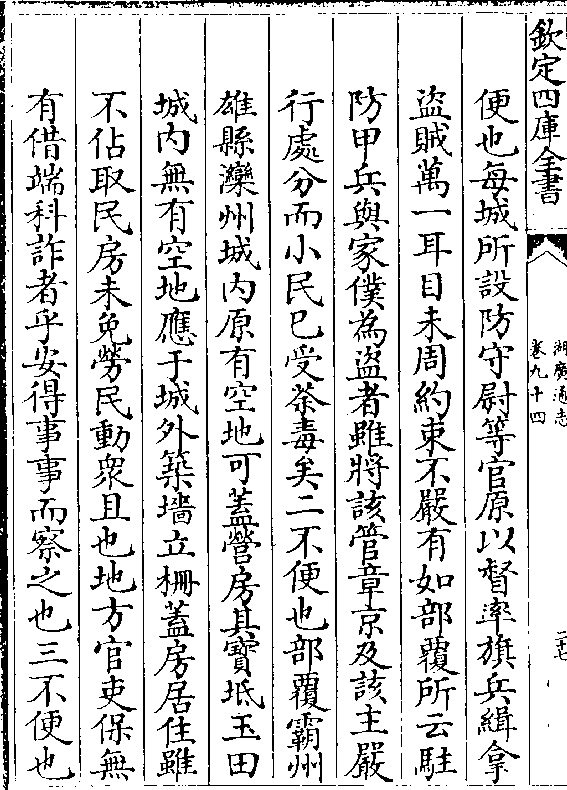 欽定四庫全書
湖廣通志
卷九十四
二七
便也每城所設防守尉等官原以督率旗兵緝拿
盜賊萬一耳目未周約束不嚴有如部覆所云駐
防甲兵與家僕為盜者雖將該管章京及該主嚴
行處分而小民已受荼毒矣二不便也部覆霸州
雄縣灤州城内原有空地可蓋營房其寶坻玉田
城内無有空地應于城外築墻立柵蓋房居住雖
不佔取民房未免勞民動衆且也地方官吏保無
有借端科詐者乎安得事事而察之也三不便也